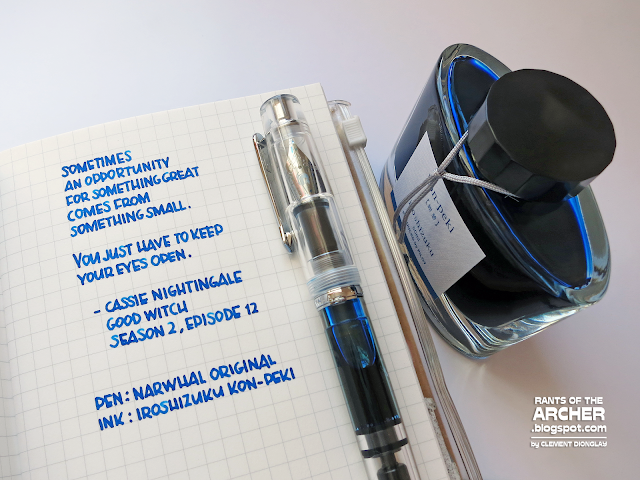 SOMETIMES
AN OPPORTUNITY
FOR SOMETHING GREAT
COMES FROM
SOMETHING SMALL.
YOU JUST HAVE TO KEEP
YOUR EYES OPEN.
- CASSIE NIGHTINGALE
GOOD WITCH
SEASON 2, EPISODE 12
PEN: NARWHAL ORIGINAL
INK: IROSHIZUKU KON-PEKI
n-peki
oshizuku
RANTS OF THE
ARCHER
.blogspot.com
by CLEMENT DIONGLAY